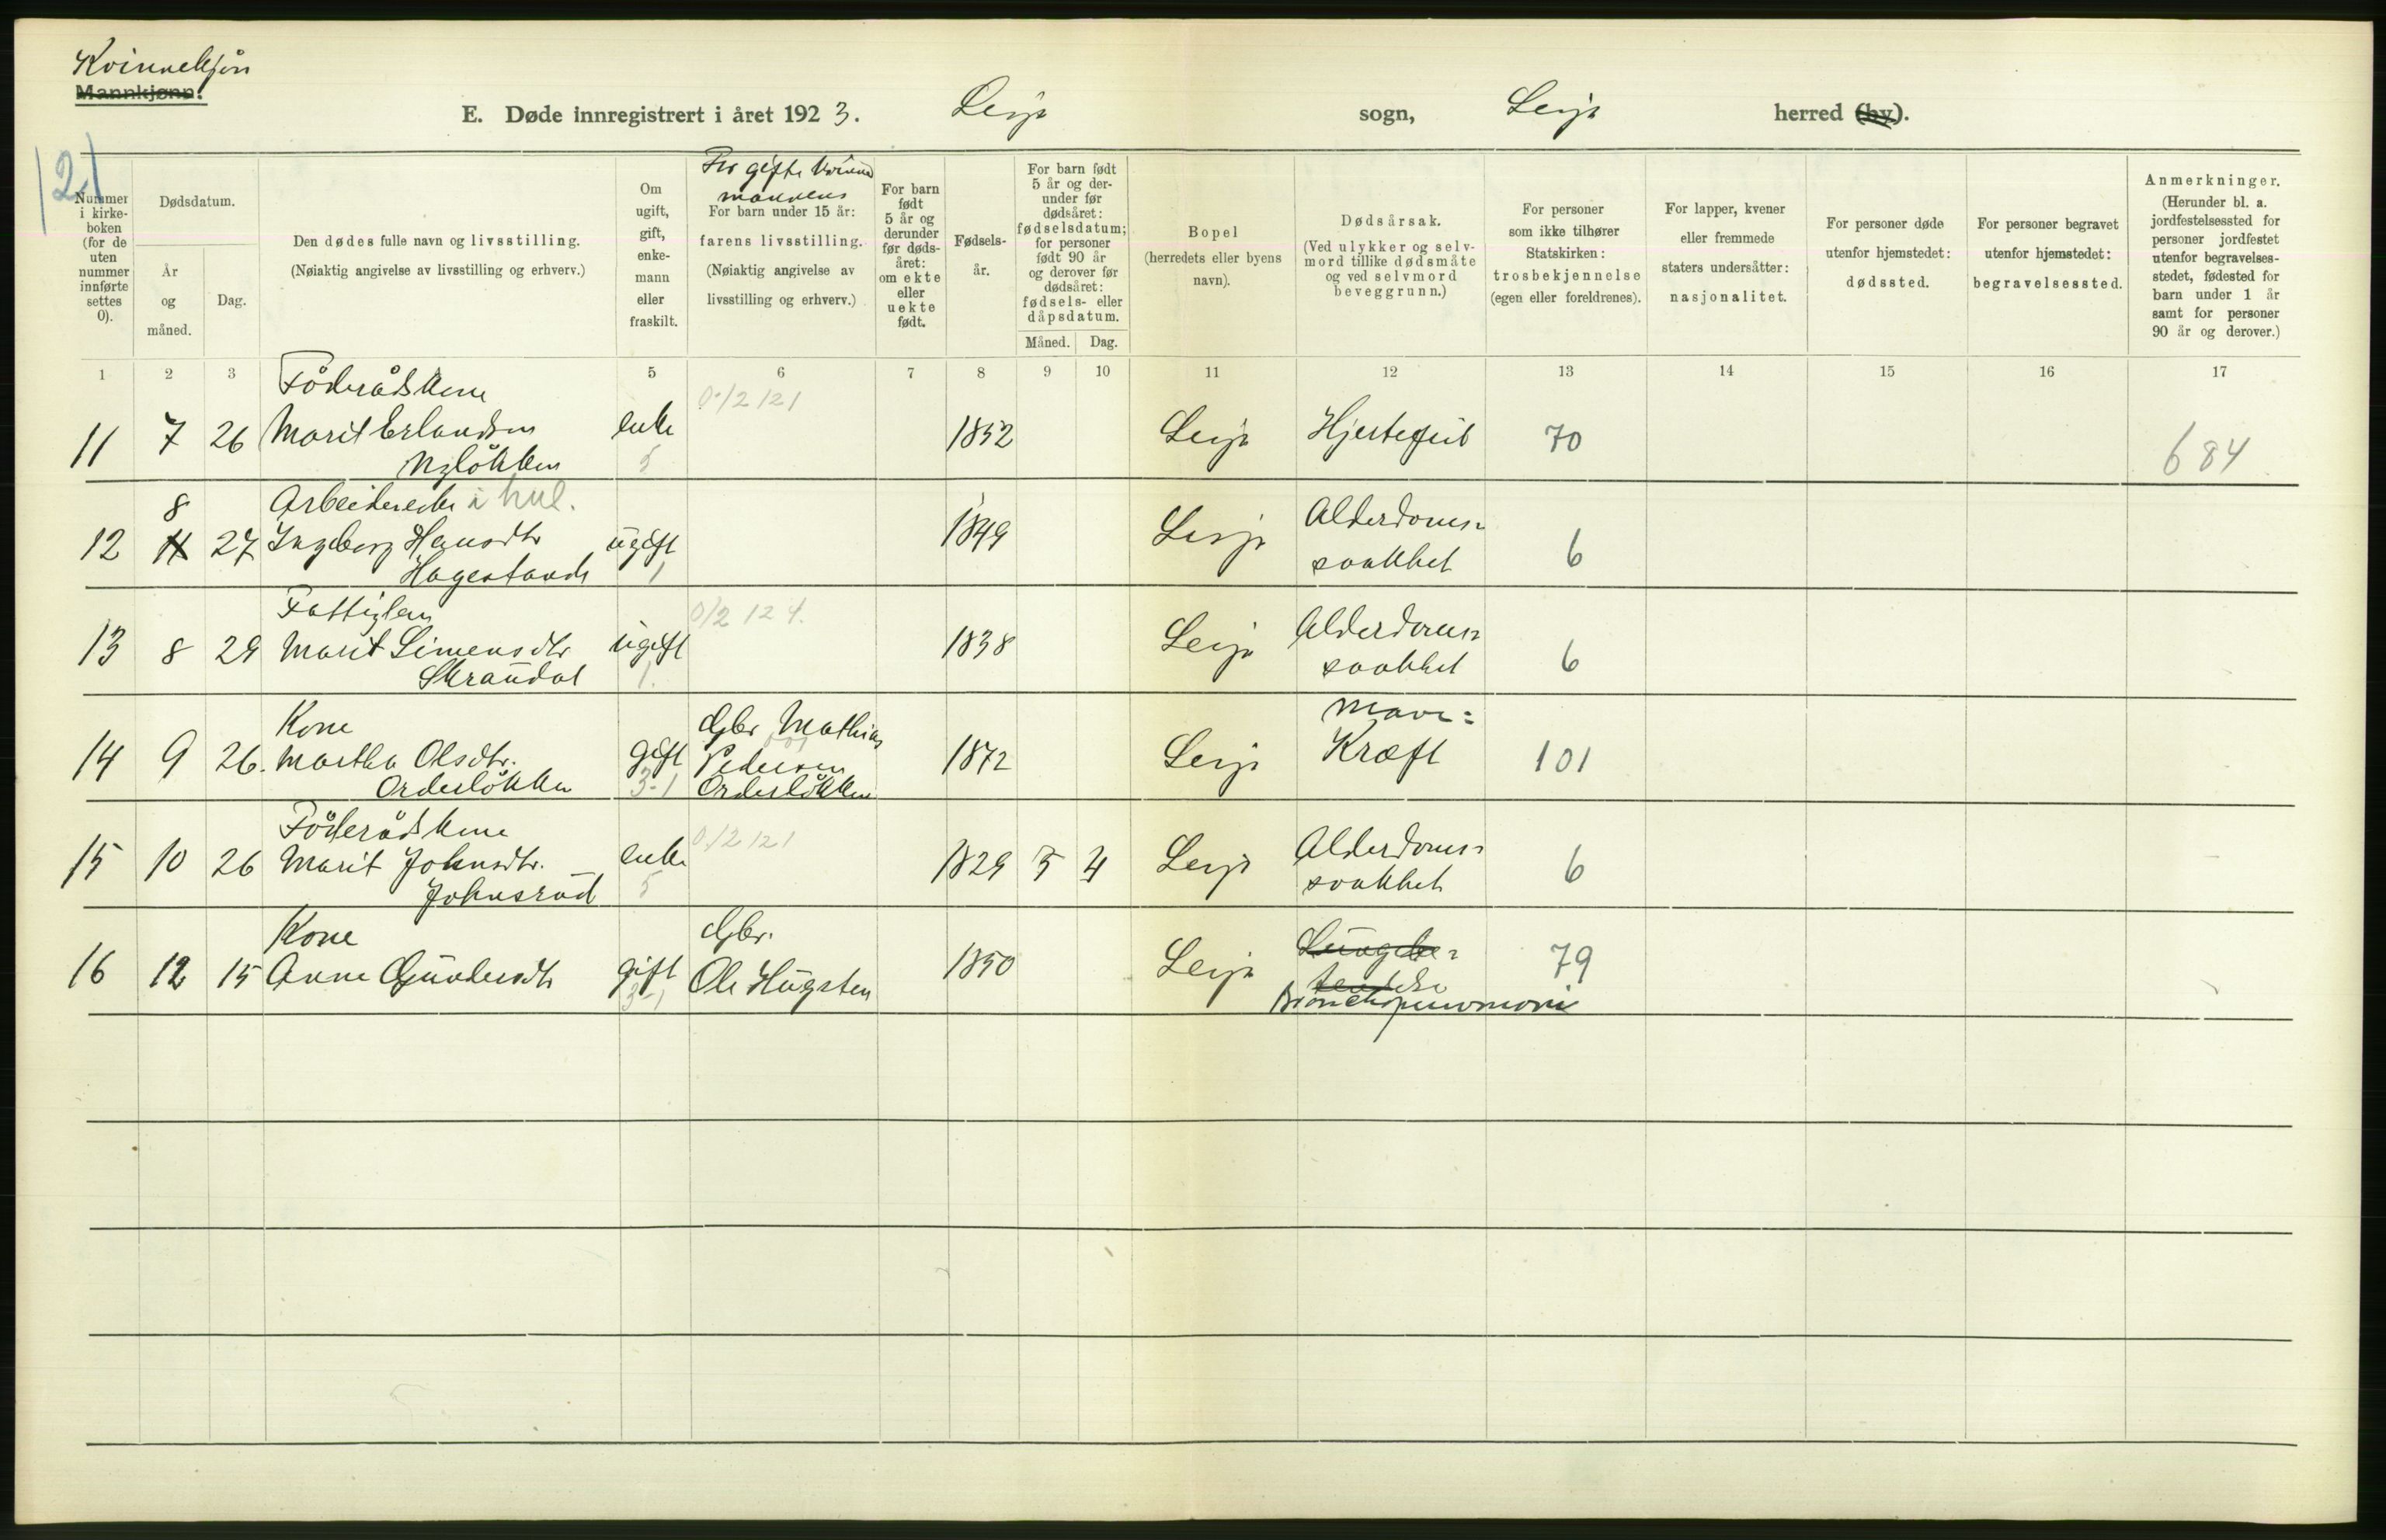 Kvinnekjøn
Mannkjønn.
E. Døde innregistrert i året 1923. Lesja sogn, Lesja herred (by).
12)
Nummer i kirke-boken (for de uten nummer innførte settes 0).
Dødsdatum.
År og måned.
Dag.
Den dødes fulle navn og livsstilling.
(Nøiaktig angivelse av livsstilling og erhverv.)
Om ugift, gift, enke-mann eller fraskilt.
For gifte kvinner mannens
For barn under 15 år:
farens livsstilling.
(Nøiaktig angivelse av
livsstilling og erhverv.)
For barn født 5 år og derunder før døds-året: om ekte eller uekte født.
Fødsels-år.
For barn født 5 år og der-under før dødsåret: fødselsdatum; for personer født 90 år og derover før dødsåret: fødsels- eller dåpsdatum.
Måned. Dag.
Bopel
(herredets eller byens navn).
Dødsårsak.
(Ved ulykker og selv-mord tillike dødsmåte og ved selvmord beveggrunn.)
For personer som ikke tilhører Statskirken: trosbekjennelse (egen eller foreldrenes).
For lapper, kvener eller fremmede staters undersåtter: nasjonalitet.
For personer døde utenfor hjemstedet: dødssted.
For personer begravet utenfor hjemstedet: begravelsessted.
Anmerkninger.
(Herunder bl. a. jordfestelsessted for personer jordfestet utenfor begravelses-stedet, fødested for barn under 1 år samt for personer 90 år og derover.)
1 2 3 5 6 7 8 9 10 11 12 13 14 15 16 17
Föderådskone 0/2 121
11 7 26 Marit Erlandsen enke 1852 Lesja Hjertefeil 70 684
Nyløkken 5
8 Arbeiderske i hul. Alderdoms=
12 11 27 Ingeborg Hansdtr ugift 1849 Lesja svakhet 6
Hagestande 1
Fattiglem 0/2 124. Alderdoms=
13 8 29 Marit Simensdtr ugift 1838 Lesja svakhet 6
Skraudal 1.
Kone Gbr Mathias Mave=
14 9 26. Martha Olsdtr. gift Pedersen 1872 Lesja Kræft 101
Orderløkken 3-1 Orderløkken
Föderådskone 0/2 121 Alderdoms=
15 10 26 Marit Johnsdtr. enke 1829 5 4 Lesja svakhet 6
Johnsrud 5
Kone Gbr. Lungebe=
16 12 15 Anne Gundersdtr gift Ole Hugsten 1850 Lesja tendelse 79
3-1 Bronchopneumoni